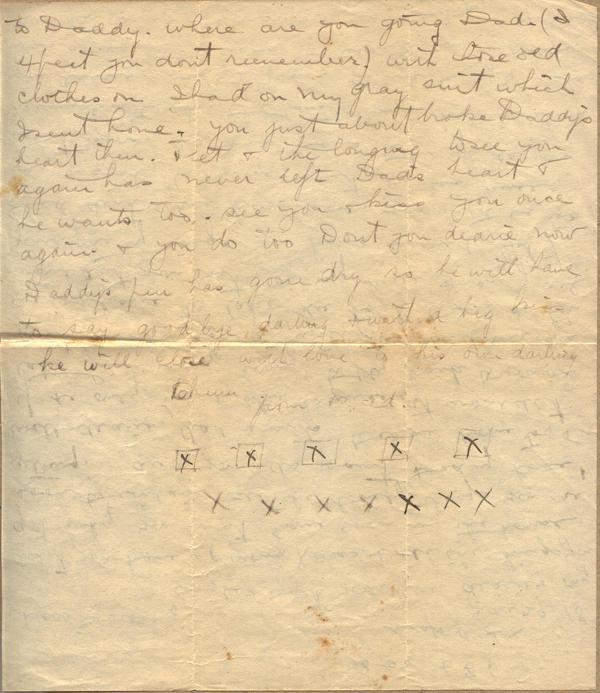 to Daddy. where are you going Dad. (I
4pect you dont remember) with those old
clothes on I had on my gray suit which
I sent home. you just about broke Daddy's
heart then. & the longing to see you
again has never left Dads heart &
he wants too. see you & kiss you once
again & you do too Dont you dearie now
Daddy's pen has gone dry so he will have
to say good bye darling & want a big kiss
he will close with love to his own darling
from
X X X X X
X X X X X X X